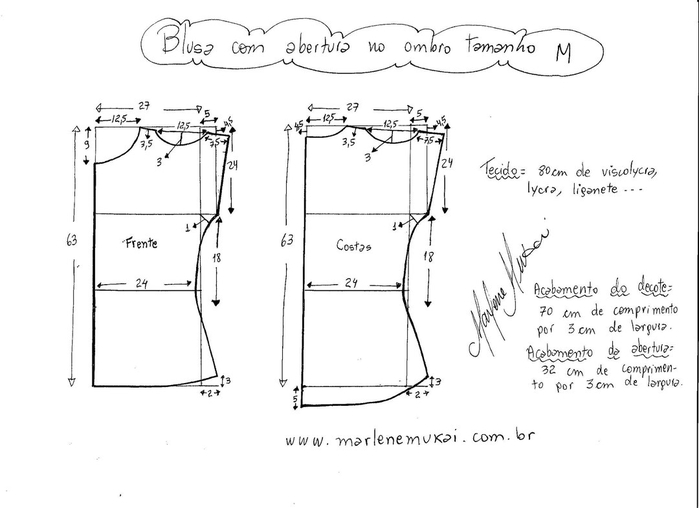 Blusa com abertura no ombro tamanho M
27
5
12,5
12,5
4,5
9
7,5
7,5
3
24
63
1
Frente
18
24
3
2
27
5
4,5
12,5
12,5
4,5
3,5
7,5
3
24
63
1
Costas
18
24
3
2
5
Tecido= 80cm de viscolycra,
lycra, liganete ...
Marlene Mukai
Acabamento do decote=
70 cm de comprimento
por 3cm de largura.
Acabamento da abertura=
32 cm de comprimen-
to por 3cm de largura.
www.marlenemukai.com.br